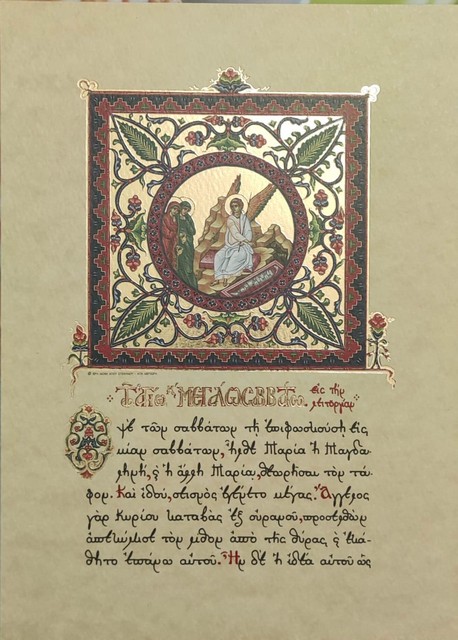 Τῷ ἁγίῳ κ̀ Μεγάλῳ Σαββάτῳ. εἰς τὴν
λειτουργίαν
Ὀψὲ τῶν σαββάτων τῇ ἐπιφωσκούσῃ εἰς
μίαν σαββάτων, ἦλθε Μαρία ἡ Μαγδα-
ληνὴ, ϗ ἡ ἄλλη Μαρία, θεωρῆσαι τὸν τά-
φον. Καὶ ἰδοὺ, σεισμὸς ἐγένετο μέγας. Ἄγγελος
γὰρ Κυρίου καταβὰς ἐξ οὐρανοῦ, προσελθὼν
ἀπεκύλισε τὸν λίθον ἀπὸ τῆς θύρας ϗ ἐκά-
θητο ἐπάνω αὐτοῦ. Ἦν δὲ ἡ ἰδέα αὐτοῦ ὡς